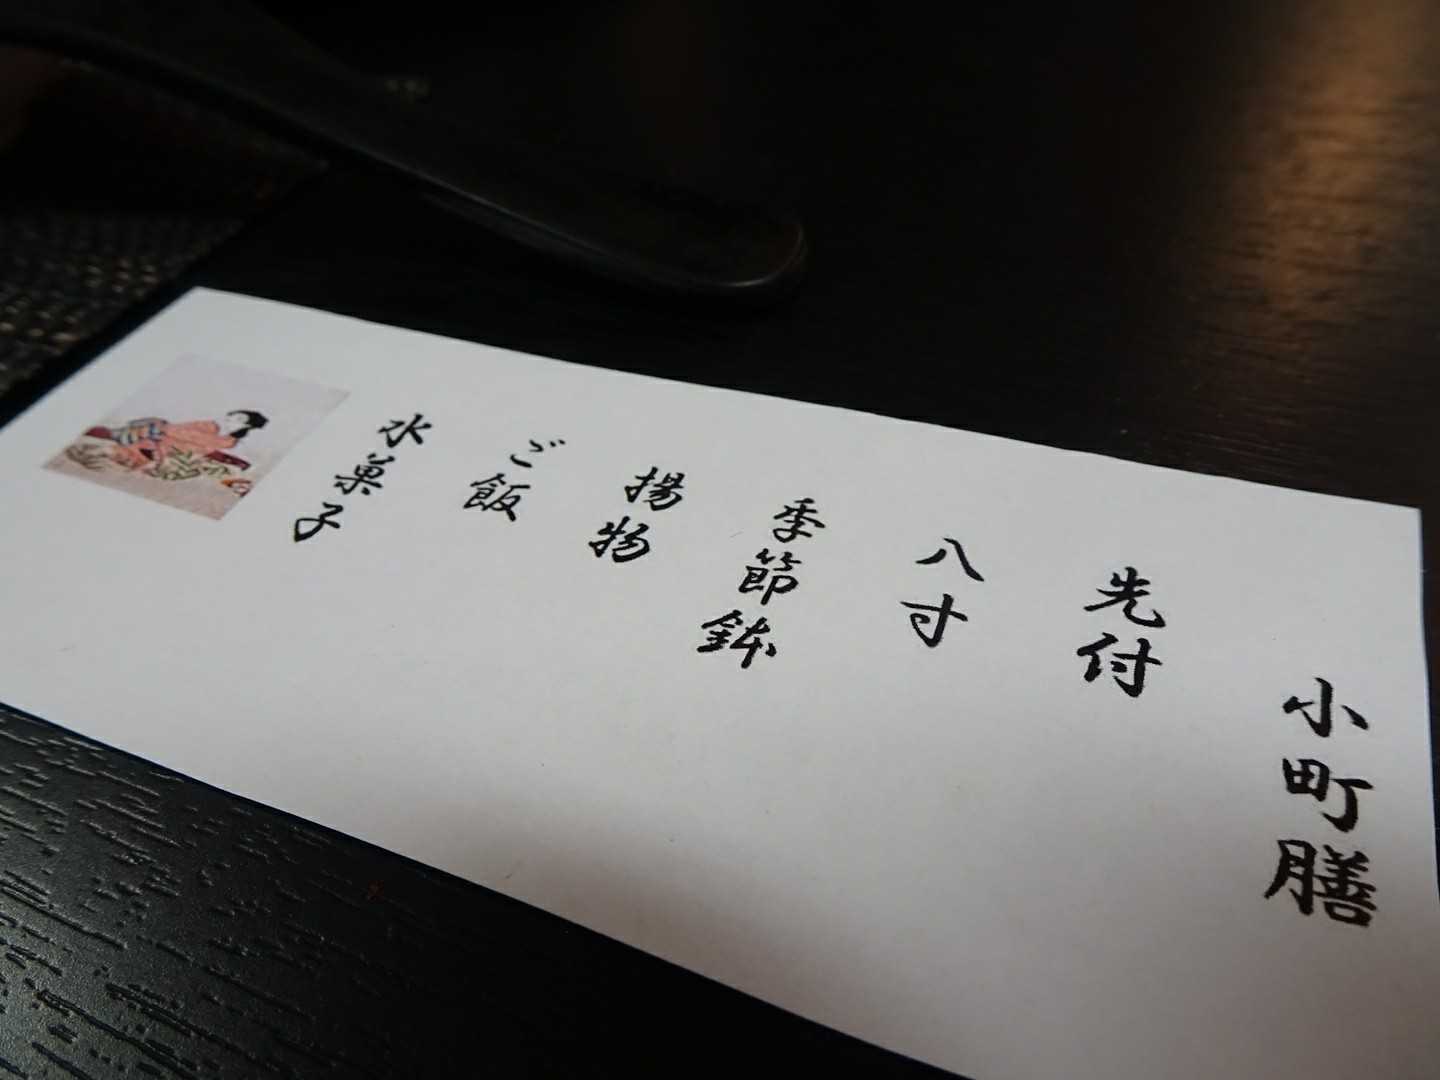 小町膳
先付
八寸
季節鉢
揚物
ご飯
水菓子